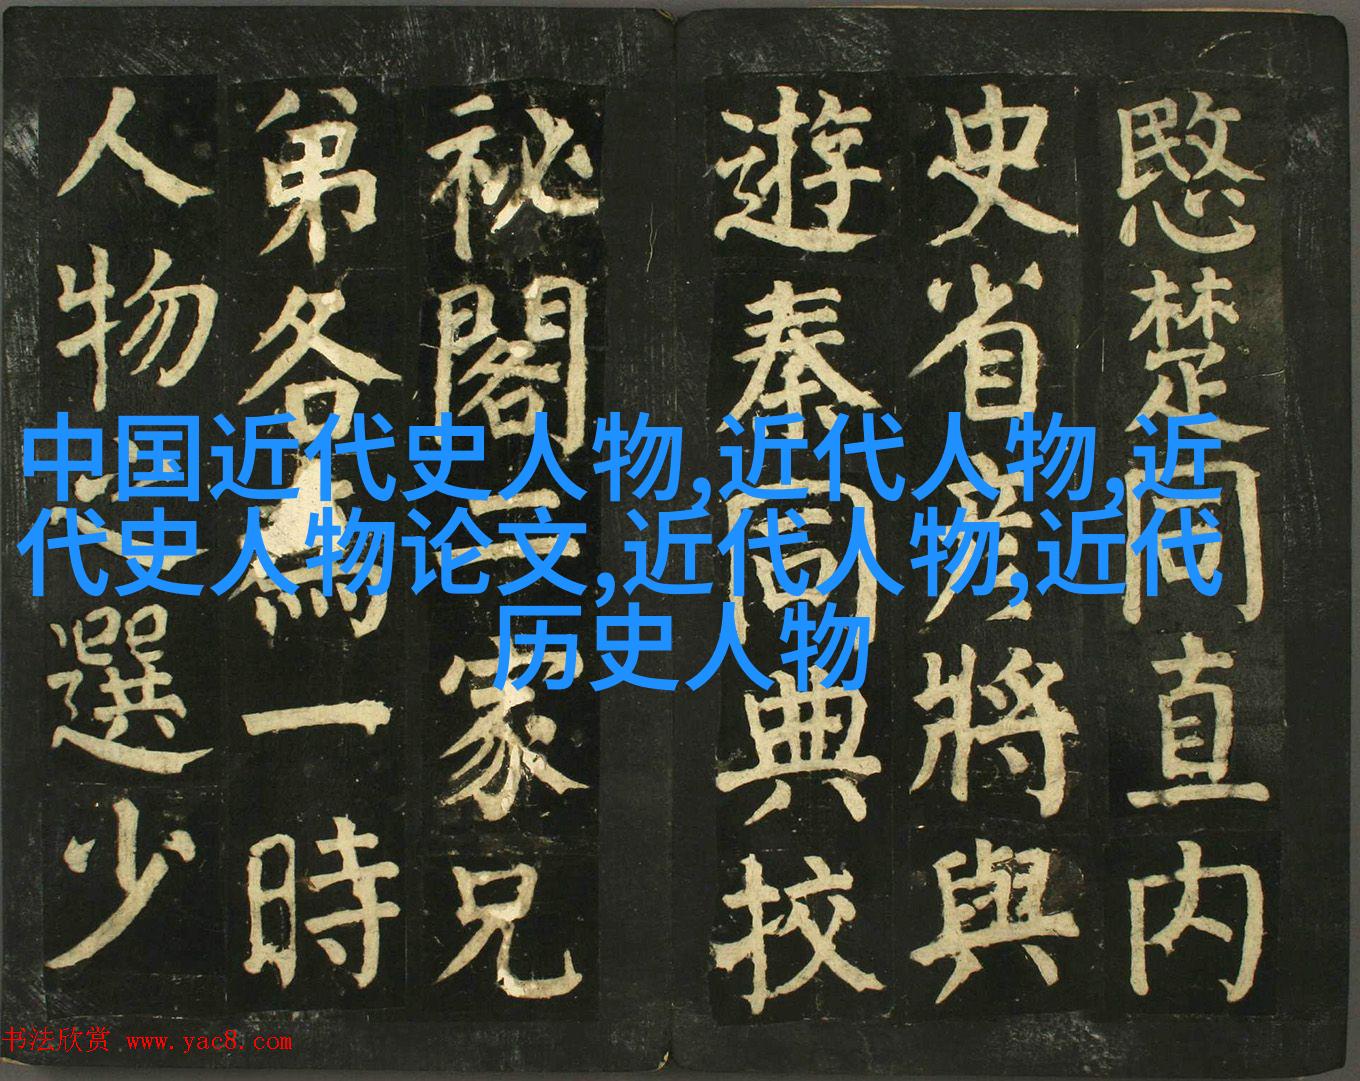 愍楚同直内
史省彦將與
遊秦同典校
祕閣二家兄
弟各為一時
人物之選少
中国近代史人物,近代人物,近
代史人物论文,近代人物,近代
历史人物
书法欣赏 www.yac8.com